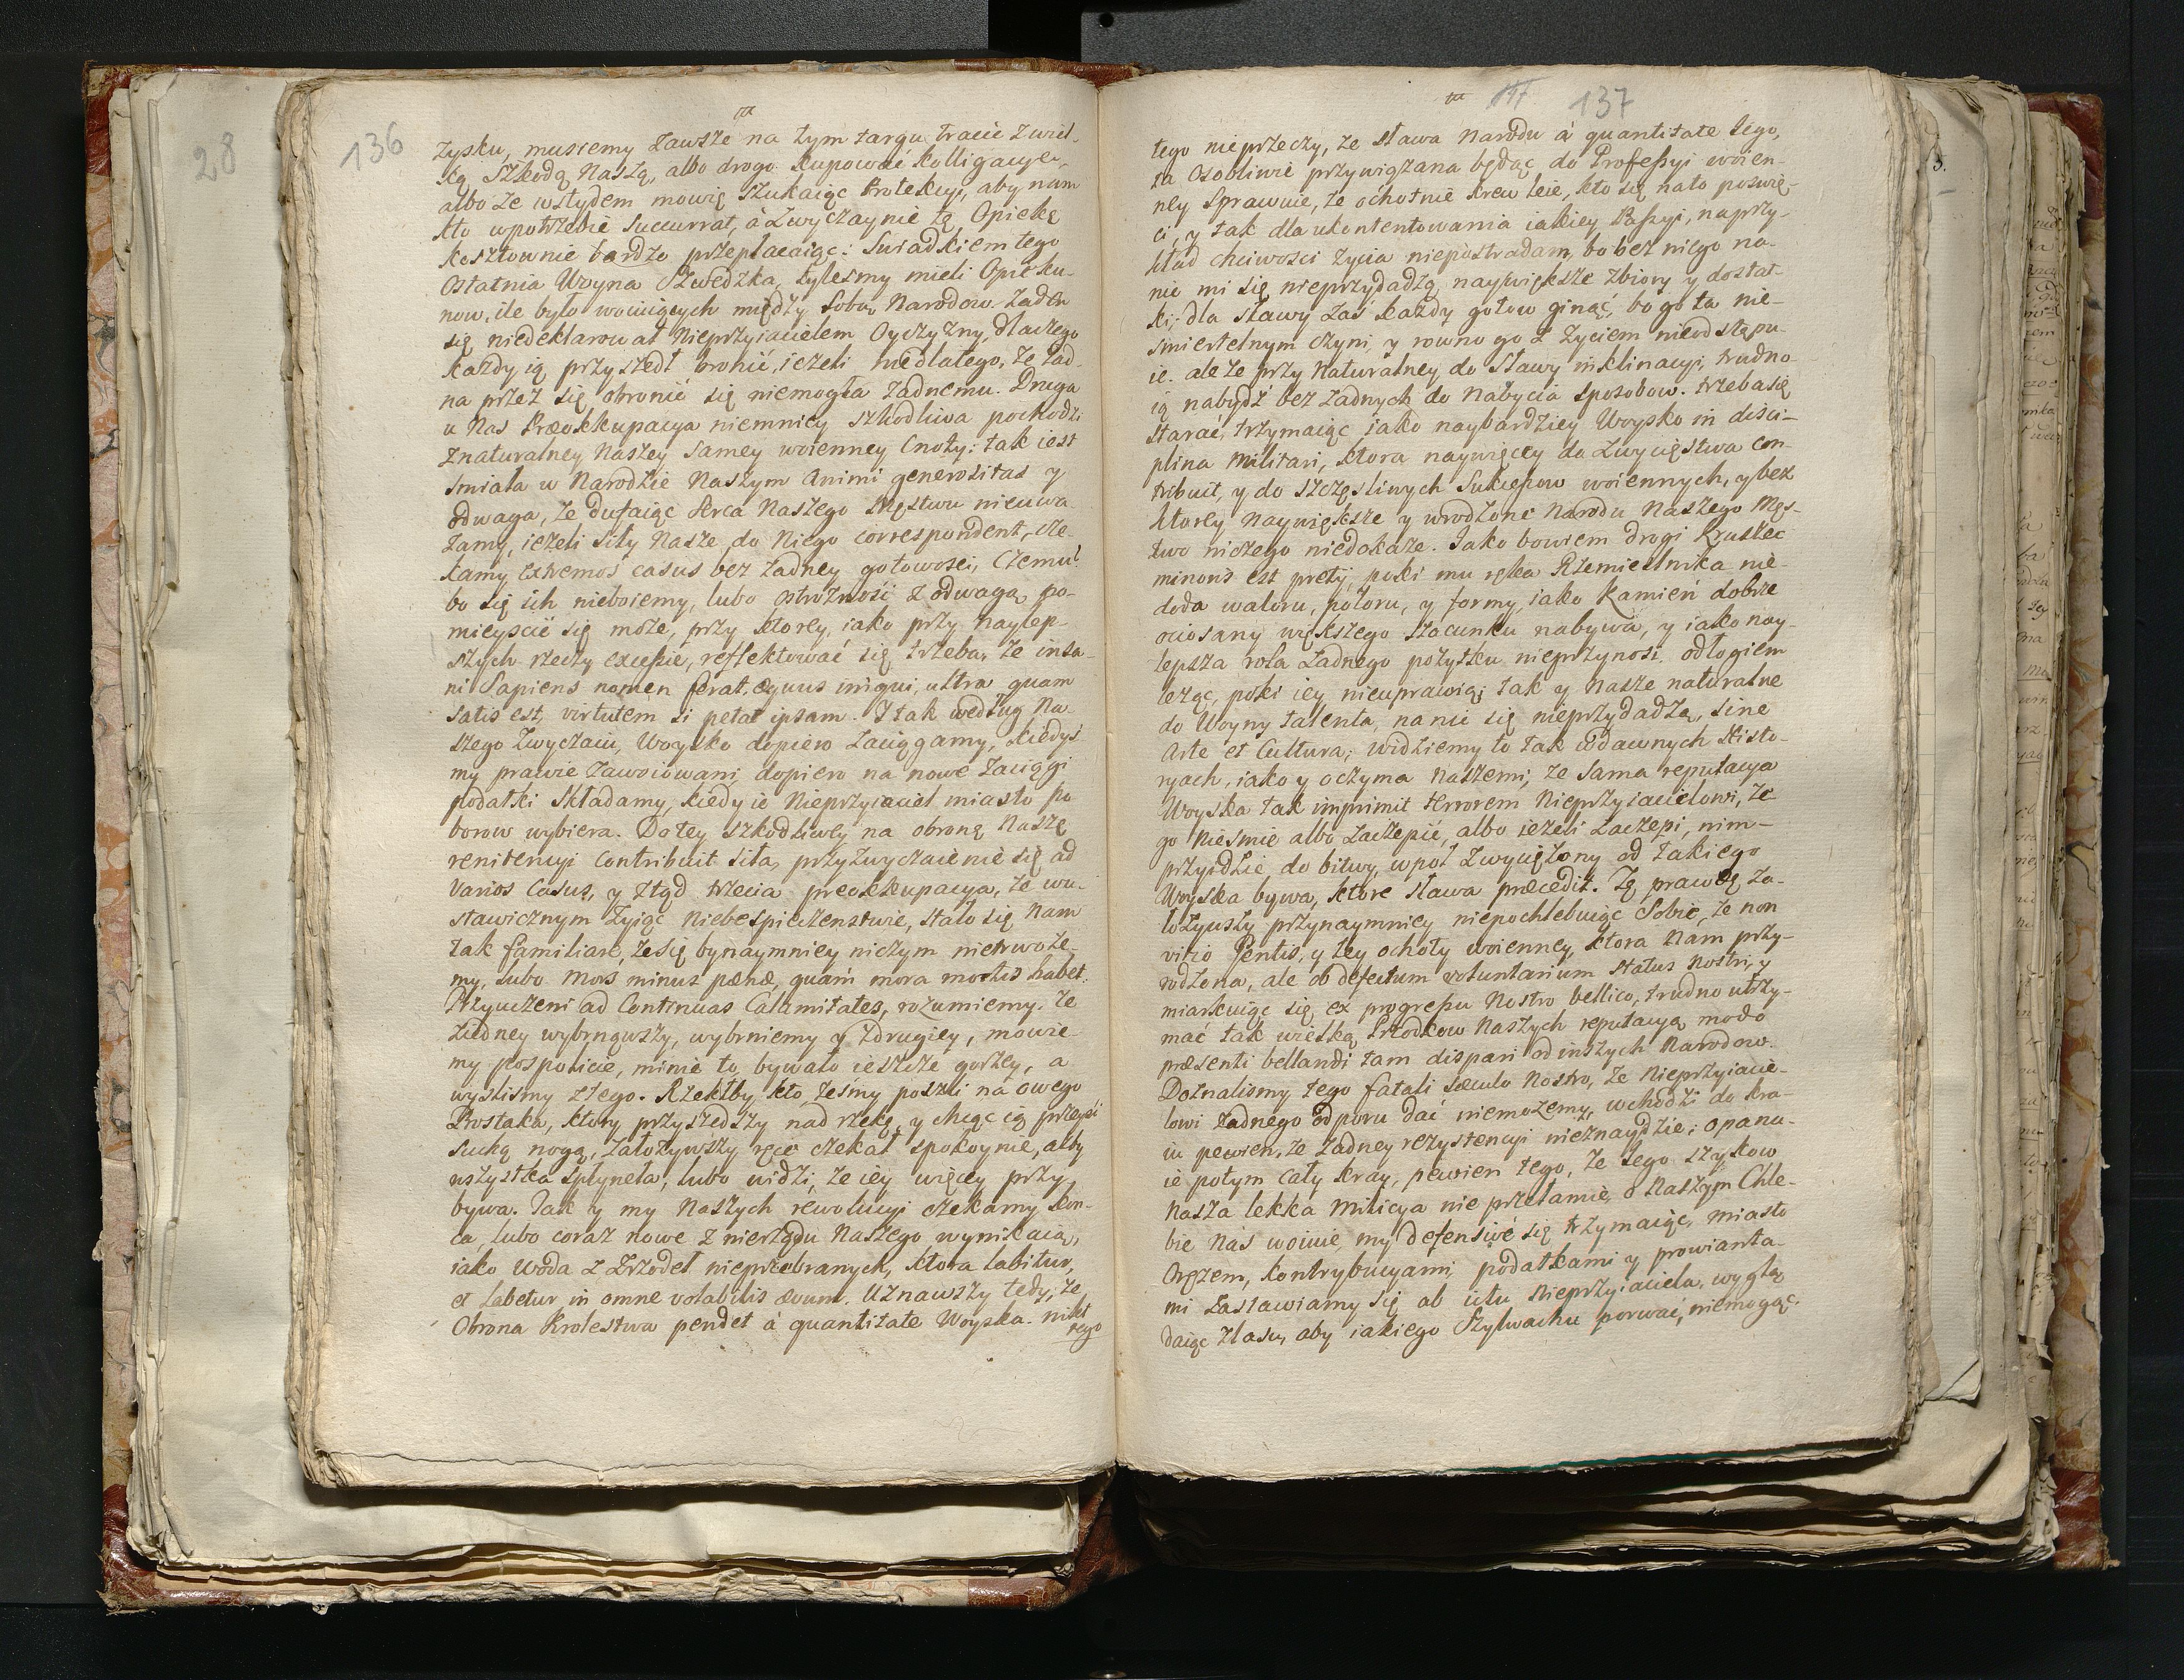 28
136
zysku, musiemy zawsze na tym targu tracić z wiel-
ką szkodą Naszą, albo drogo kupować kolligacye,
albo ze wstydem mowię szukaiąc Protekcyi, aby nam
kto w potrzebie succurrat, à zwyczaynie tę Opiekę
kosztownie bardzo przepłacaiąc: Swiadkiem tego
ostatnia Woyna Szwedzka, tylesmy mieli Opieku-
now, ile było woiuiących między sobą Narodow. Zaden
się niedeklarował Nieprzyiacielem Oyczyzny, dlaczego
każdy ią przyszedł bronić, ieżeli niedlatego, że żad-
na przez się obronić się niemogła żadnemu. Druga
u Nas Præokkupacya niemniey szkodliwa pochodzi
z naturalney Naszey samey woienney Cnoty: tak iest
smiała w Narodzie Naszym Animi generositas y
odwaga, że dufaiąc serca Naszego Męstwu nieuwa-
żamy, ieżeli siły Nasze do Niego correspondent, cze-
kamy extremos casus bez żadney gotowosci, Czemu?
bo się ich nieboiemy, lubo ostrożność z odwagą po-
mieyscić się może, przy ktorey, iako przy naylep-
szych rzeczy excessie, reflektować się trzeba, że insa-
ni Sapiens nomen ferat, æquus iniqui, ultra quam
satis est, virtutem si petat ipsam. I tak według Na-
szego zwyczaiu, Woysko dopiero zaciągamy, kiedys-
my prawie zawoiowani, dopiero na nowe zaciągi
podatki składamy, kiedy ie Nieprzyiaciel miasto po-
borow wybiera. Do tey szkodliwey na obronę Naszę
renitencyi contribuit siła, przyzwyczaienie się ad
varios casus, y ztąd trzecia preokkupacya, że w u-
stawicznym żyiąc niebespieczenstwie, stało się Nam
tak familiare, że się bynaymniey niczym nietrwoże-
my, lubo mors minus pænæ, quam mora mortis habet.
Przyuczeni ad Continuas Calamitates, rozumiemy, że
z iedney wybrnąwszy, wybrniemy y z drugiey, mowie-
my pospolicie, minie to, bywało ieszcze gorzey, a
wyszlismy z tego. Rzekłby kto żeśmy poszli na owego
Prostaka, ktory przyszedszy nad rzekę, y chcąc ią przeyść
suchą nogą, założywszy ręce czekał spokoynie, aby
wszystka spłyneła, lubo widzi, że iey więcey przy-
bywa. Tak y my Naszych rewolucyi czekamy kon-
ca, lubo coraz nowe z nierządu Naszego wynikaią,
iako woda z zrzodeł nieprzebranych, ktora labitur,
et labetur in omne volabilis ævum. Uznawszy tedy, że
Obrona Krolestwa pendet à quantitate Woyska. nikt
tego
137
tego nieprzeczy, że sława Narodu à quantitate tego,
ta osobliwie przywiązana będąc do Professyi woien-
ney sprawuie, że ochotnie krew leie, kto się na to poswię-
ci, y tak dla ukontentowania iakiey Passyi, naprzy-
kład chciwosci życia niepostradam, bo bez niego na-
nic mi się nieprzydadzą, naywiększe zbiory y dostat-
ki; dla sławy zaś każdy gotow ginąć, bo go ta nie-
smiertelnym czyni, y rowno go z życiem nieodstępu-
ie. ale że przy Naturalney do Sławy inklinacyi, trudno
ią nabydź bez żadnych do nabycia sposobow. trzeba się
starać, trzymaiąc iako naybardziey Woysko in disci-
plina Militari, ktora naywięcey do zwycięstwa con-
tribuit, y do szczęsliwych sukcessow woiennych, y bez
ktorey naywiększe y wrodzone Narodu Naszego Męs-
two niczego niedokaże. Jako bowiem drogi kruszec
minoris est pretij, poki mu ręka Rzemieslnika nie-
doda waloru, poloru, y formy, iako Kamień dobrze
ociosany większego szacunku nabywa, y iako nay-
lepsza rola żadnego pożytku nieprzynosi, odłogiem
leżąc, poki iey nieuprawią; tak y Nasze naturalne
do Woyny talenta, na nic się nieprzydadzą, sine
Arte et Cultura; widziemy to tak w dawnych Histo-
ryach, iako y oczyma Naszemi; że sama reputacya
Woyska tak imprimit terrorem Nieprzyiacielowi, że
go nieśmie albo zaczepić, albo ieżeli zaczepi, nim
przyidzie do bitwy, wpoł zwyciężony od takiego
Woyska bywa, ktore sława præcedit. Tę prawdę za-
łożywszy przynaymniey niepochlebuiąc sobie, że non
vitio Gentis, y tey ochoty woienney, ktora Nam przy-
rodzona, ale ob defectum voluntarium status Nostri, y
miarkuiąc się ex progressu Nostro bellico, trudno utrzy-
mać tak wielką Przodkow Naszych reputacyą modo
præsenti bellandi tam dispari od inszych Narodow.
Doznalismy tego fatali sæculo Nostro, że Nieprzyiacie-
lowi żadnego odporu dać niemożemy, wchodzi do kra-
iu pewien, że żadney rezystencyi nieznaydzie; opanu-
ie potym cały kray, pewien tego, że iego szykow
Nasza lekka Milicya nie przełamie, o Naszym Chle-
bie Nas woiuie, my defensive się trzymaiąc, miasto
orężem, kontrybucyami, podatkami y prowianta-
mi zastawiamy się ab ictu Nieprzyiaciela, wyglą-
daiąc z lasu, aby iakiego szylwachu porwać, niemogąc